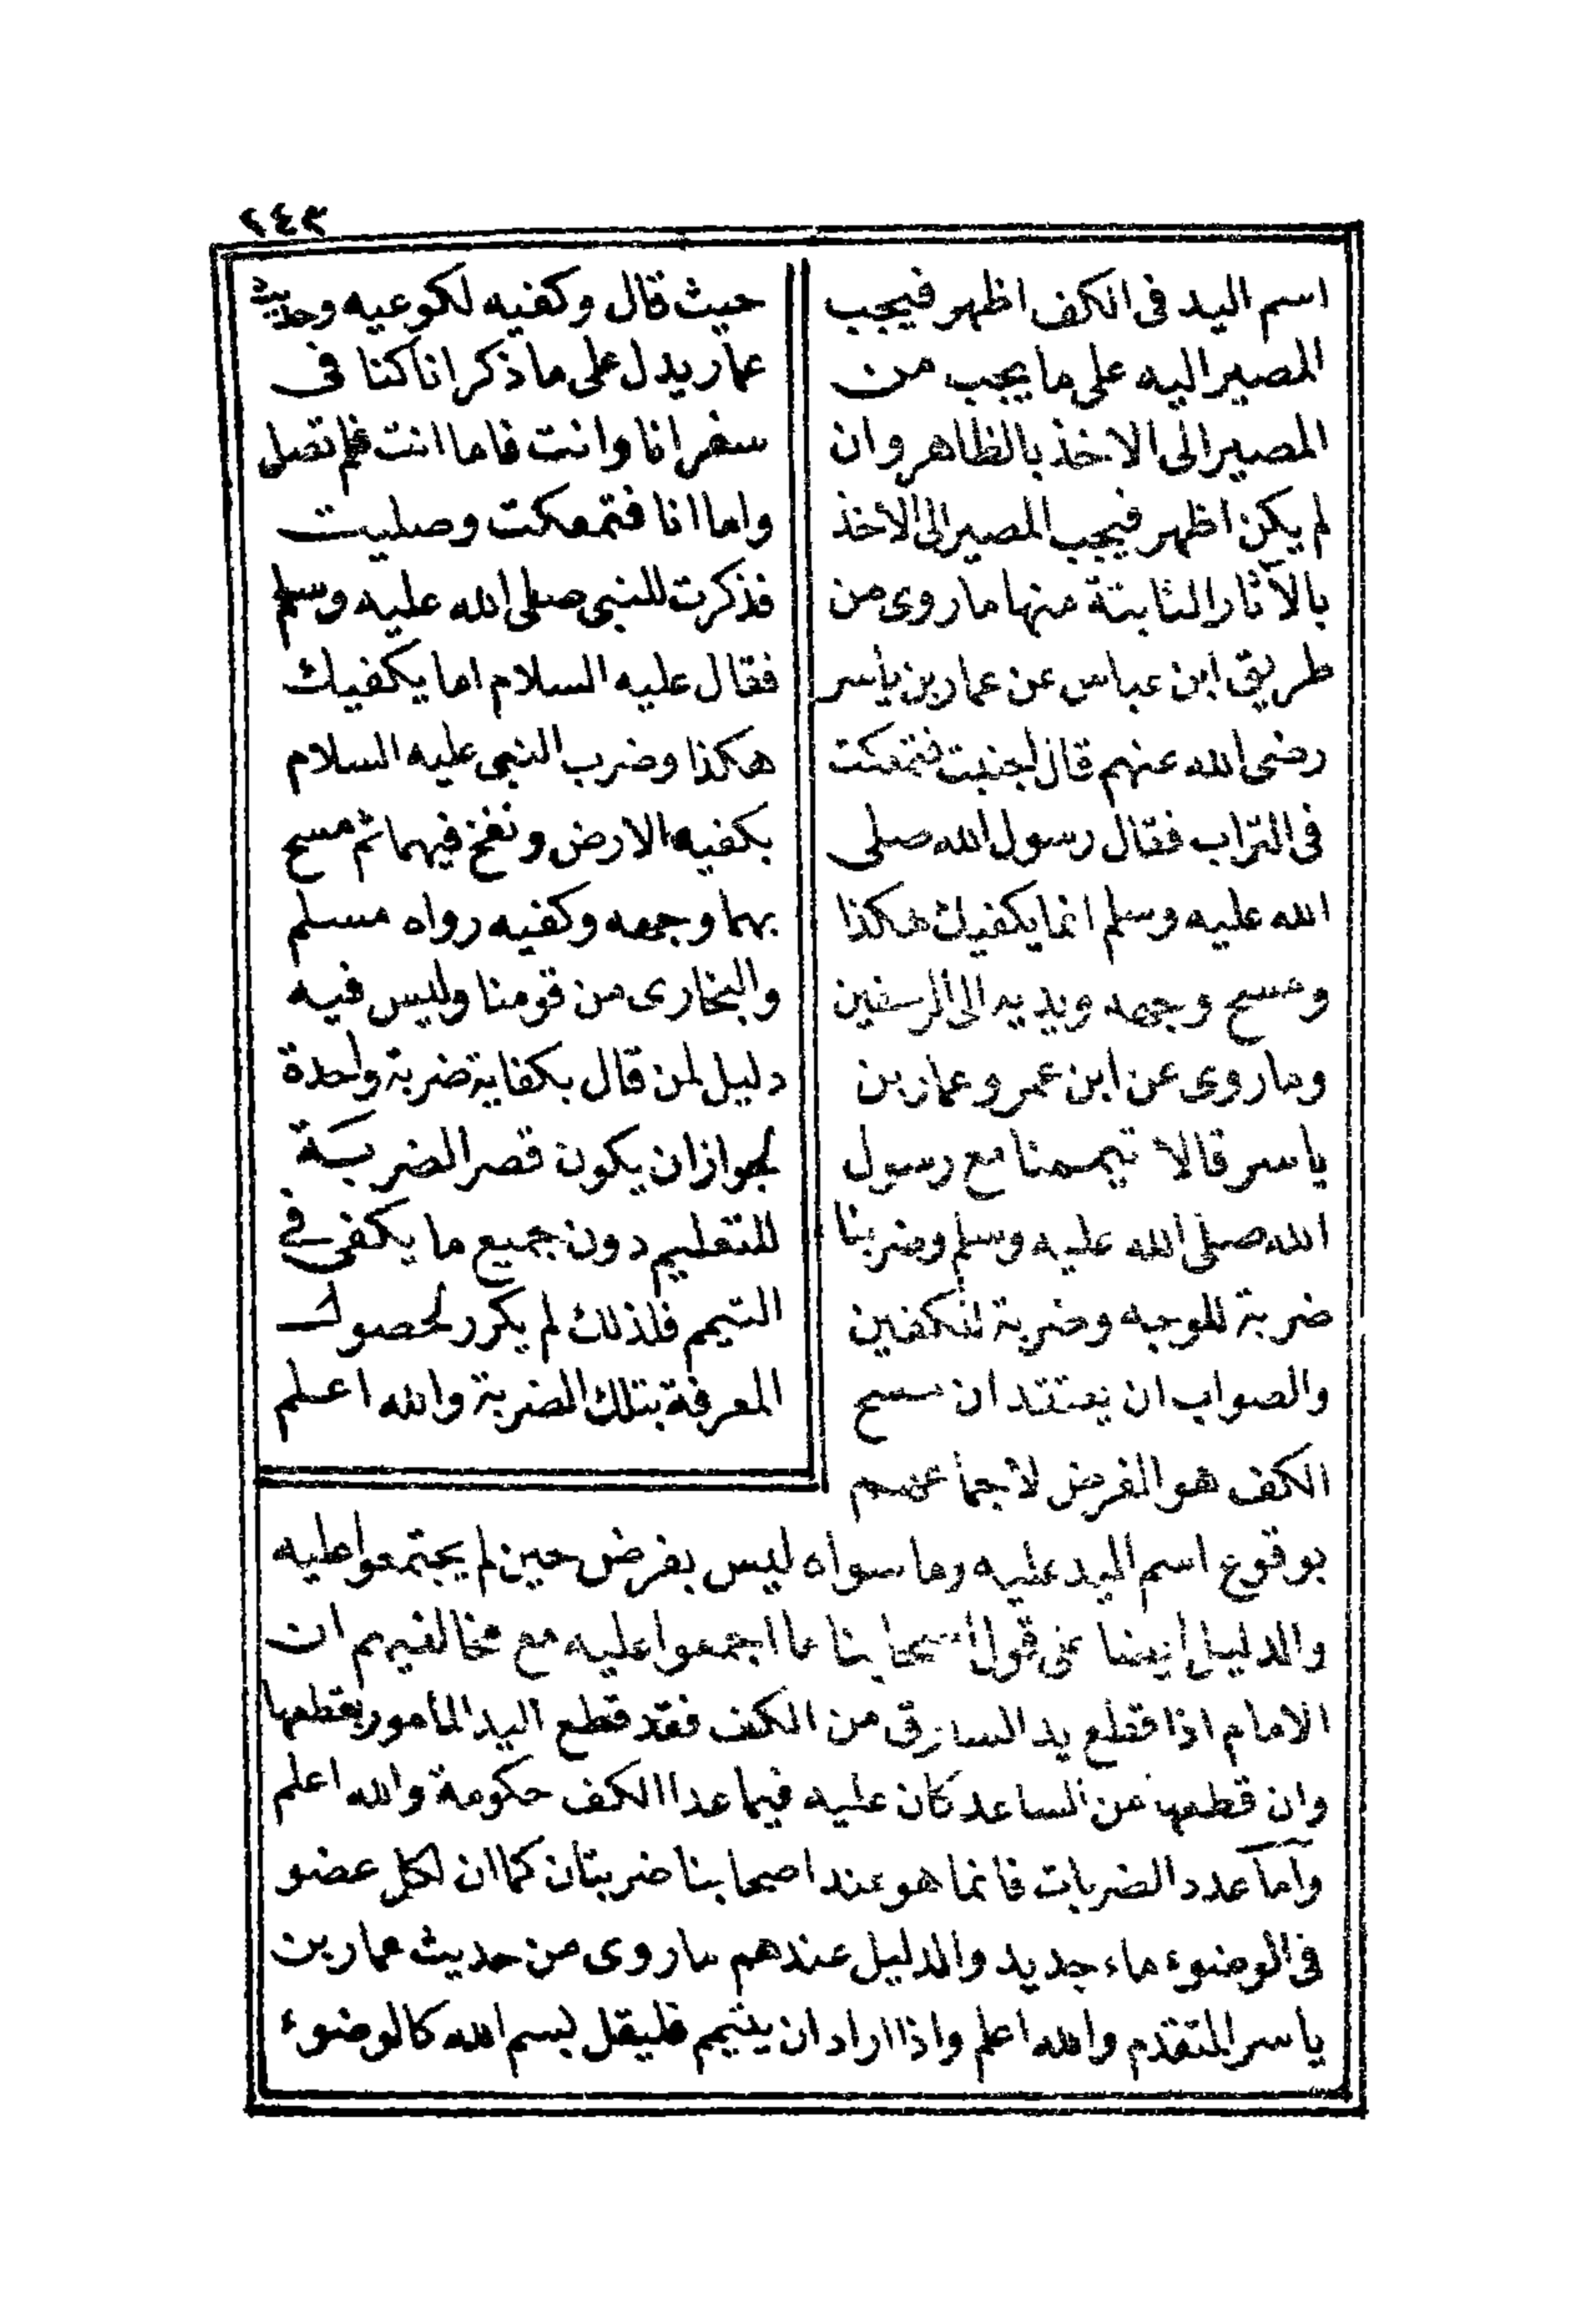 ٢٤٣
اسم اليد فى الكف اظهر فيجب
المصير اليه على ما يجب من
المصير الى الاخذ بالظاهر وان
لم يكن اظهر فيجب المصير الى الاخذ
بالآثار الثابتة منها ما روى من
طريق ابن عباس عن عمار بن ياسر
رضى الله عنهم قال اجنبت فتمعكت
فى التراب فقال رسول الله صلى
الله عليه وسلم انما يكفيك هكذا
ومسح وجهه ويديه الى الرسغين
وما روى عن ابن عمر وعمار بن
ياسر قالا تيممنا مع رسول
الله صلى الله عليه وسلم وضربنا
ضربة للوجه وضربة للكفين
والصواب ان يعتقد ان مسح
الكف هو الفرض لاجماعهم
حيث قال وكفيه لكوعيه وحديث
عمار يدل على ما ذكر انا كنا فى
سفر انا وانت فاما انت فلم تصل
واما انا فتمعكت وصليت
فذكرت للنبى صلى الله عليه وسلم
فقال عليه السلام اما يكفيك
هكذا وضرب النبى عليه السلام
بكفيه الارض ونفخ فيهما ثم مسح
بهما وجهه وكفيه رواه مسلم
والبخارى من قومنا وليس فيه
دليل لمن قال بكفاية ضربة واحدة
لجواز ان يكون قصر الضربة
للتعليم دون جميع ما يكفى فى
التيمم فلذلك لم يكرر لحصول
المعرفة بتلك الضربة والله اعلم
بوقوع اسم اليد عليه وما سواه ليس بفرض حين لم يجتمعوا عليه
والدليل ايضا على قول اصحابنا ما اجمعوا عليه مع مخالفيهم ان
الامام اذا قطع يد السارق من الكف فقد قطع اليد المأمور بقطعها
وان قطعها من الساعد كان عليه فيما عدا الكف حكومة والله اعلم
وأما عدد الضربات فانما هو عند اصحابنا ضربتان كما ان لكل عضو
فى الوضوء ماء جديد والدليل عندهم ما روى من حديث عمار بن
ياسر المتقدم والله اعلم واذا اراد ان يتيمم فليقل بسم الله كالوضوء